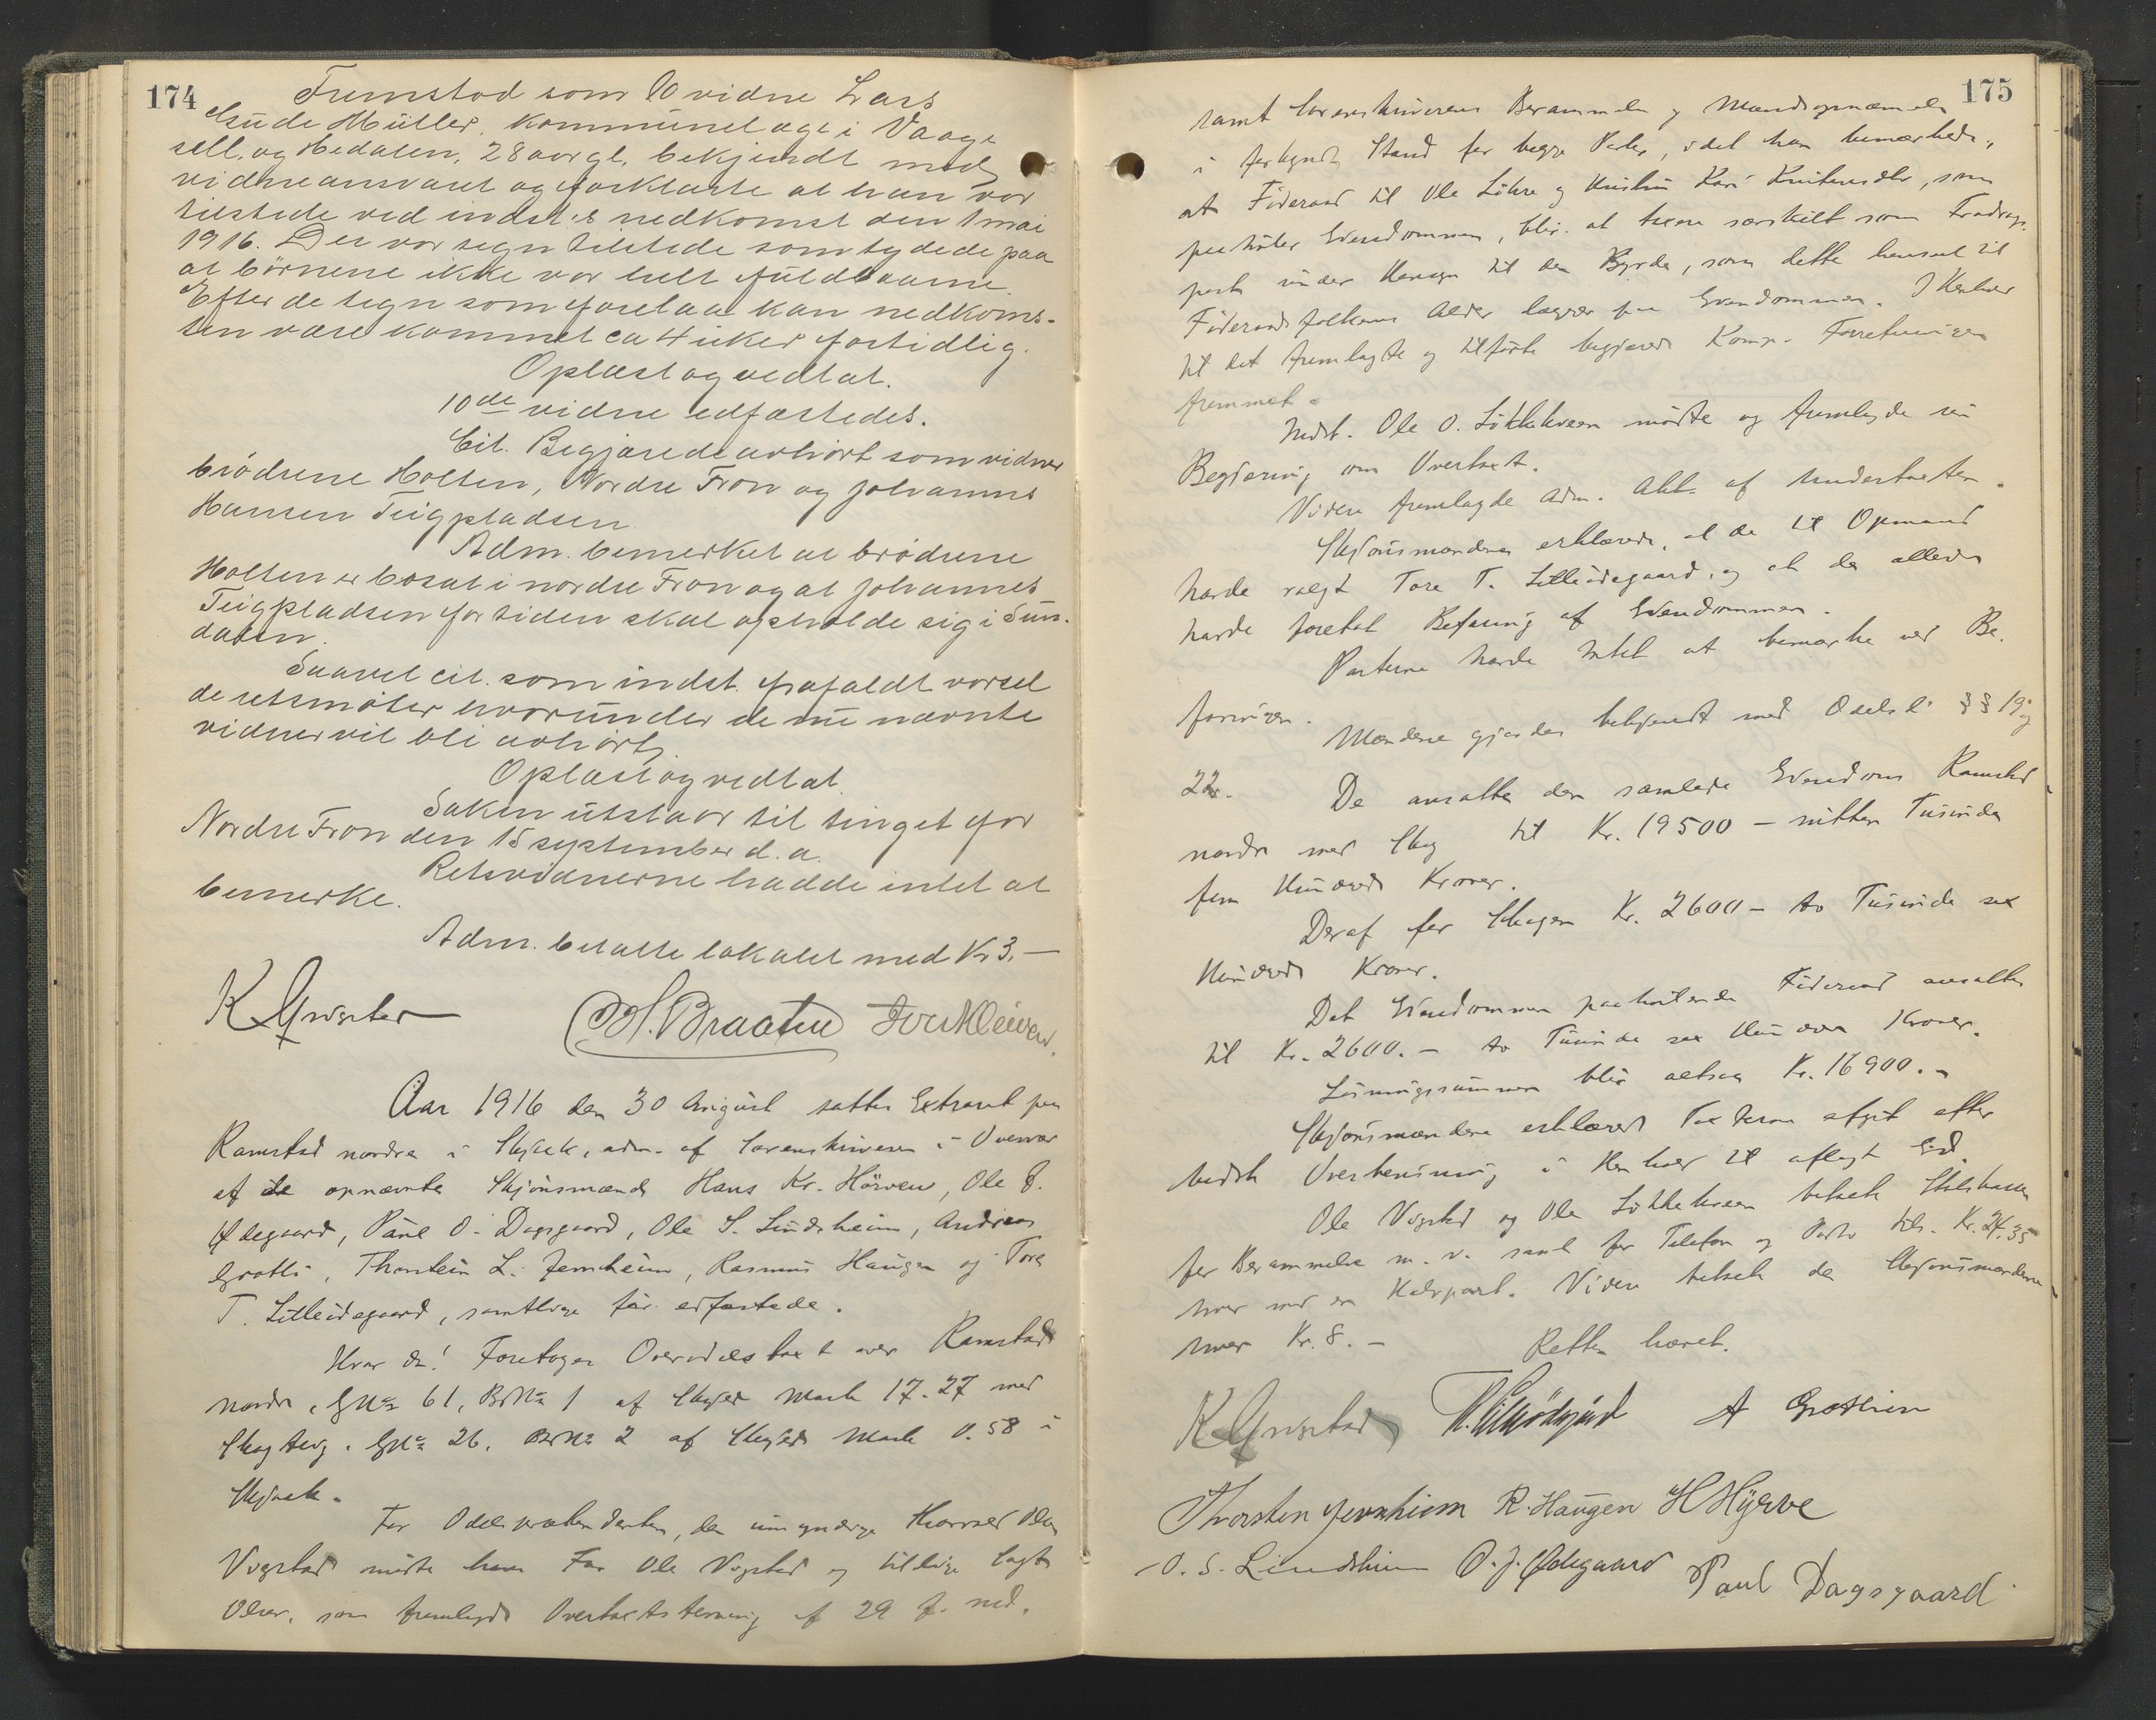 174
Fremstod som 10 vidne Lars
Trude Müller, kommunelæge i Vaage
sell. og Hedalen, 28 aar gl. bekjendt med
vidneansvaret og forklarte at han var
tilstede ved indst.s nedkomst den 1 mai
1916. Der var tegn tilstede som tydede paa
at börnene ikke var helt fuldbaarne.
Efter de tegn som forelaa kan nedkoms-
ten være kommet ca 4 uker fortidlig.
Oplæst og vedtat.
10de vidne edfæstedes.
Cit. Begjærede avhört som vidner
brödrene Holten, Nordre Fron og Johannes
Hansen Teigpladsen
Adm. bemerket at brödrene
Holten er bosat i nordre Fron og at Johannes
Teigpladsen for tiden skal opholde sig i Sun-
dalen.
Saavel cit. som indst. frafaldt varsel
de retsmöter hvorunder de nu nævnte
vidner vil bli avhört.
Oplæst og vedtat.
Saken utstaar til tinget for
Nordre Fron den 15 september d.a.
Retsvidnerne hadde intet at
bemerke.
Adm. betalte lokalet med Kr 3.—
H. Braaten Ivar Kleiven.
Aar 1916 den 30 August sattes Extraret paa
Ramstad nordre i Skjaak, adm. af Sorenskriveren i Overvær
af de opnævnte Skjönsmænd Hans Kr. Hörven, Ole J.
Ødegaard, Paul O. Dagsgaard, Ole S. Lindsheim, Andreas
Grotli, Thorstein L. Jernheim, Rasmus Haugen og Tore
T. Lilleödegaard, samtlige för edfæstede.
Hvor da! Foretoges Overodelstaxt over Ramstad
nordre, GNo 61, BrNo 1 af Skyld Mark 17.27 med
Skogteig. GNo 26, BrNo 2 af Skyld Mark 0.58 i
Skjaak.
For Odelsprætendenten, den umyndige Olsen
Vigstad mötte hans Far Ole Vigstad og tillige
som fremlagde Overtaxtstevning af 29 f. md.
175
samt Sorenskriverens Berammelse og Mandsopnævnelse
i forkyndt Stand for begge Parter, idet han bemærkede,
at Föderaad til Ole Lökre og Hustru Kari Knutsdtr, som
paahviler Eiendommen, blir at taxere særskilt som Fradrags-
post under Hensyn til den Byrde, som dette hensat til
Föderaadsfolkenes Alder lægger paa Eiendommen. I Henhold
til det fremlagte og tilförte begjæred Komp. Forretningen
fremmet.
Indst. Ole O. Lökkekveen mötte og fremlagde sin
Begjæring om Overtaxt.
Videre fremlagde Adm. Akt af Undertaxten.
Skjönsmændene erklærede, at de til Opmand
havde valgt Tore T. Lilleödegaard, og at de allerede
havde foretat Befaring af Eiendommen.
Parterne havde Intet at bemærke ved Be-
faringen.
Mændene gjordes bekjendt med Odelsl. §§ 19 og
22.
De ansatte den samlede Eiendom Ramstad
nordre med Skog til Kr. 19500 — nitten Tusinde
fem Hundrede Kroner.
Deraf for Skogen Kr. 2600 — to Tusinde sex
Hundrede Kroner.
Det Eiendommen paahvilende Föderaad ansattes
til Kr. 2600. — to Tusinde sex Hundrede Kroner.
Lösningssummen blir altsaa Kr. 16900.—
Skjönsmændene erklæred Taxterne afgit efter
bedste Overbevisning i Henhold til aflagt Ed.
Ole Vigstad og Ole Lökkekveen betalte
for Berammelse m. v. samt for Telefon og Porto tils. Kr. 24.35
hver med en Halvpart. Videre betalte de Skjönsmændene
hver Kr. 8.—
Retten hævet.
T. Lilleödegård A Grotlien
Thorsten Jernhiem R. Haugen H Hyrve
O. S. Lindsheim O. J. Ødegaard Paul Dagsgaard